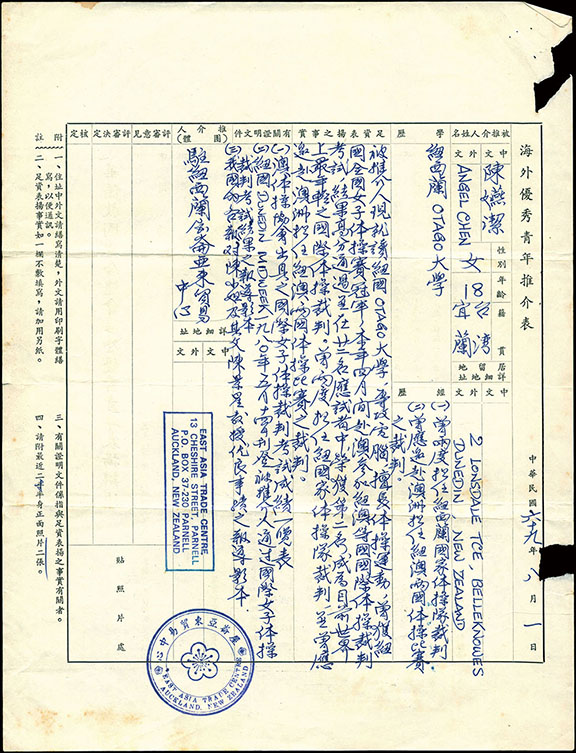 海外優秀青年推介表
中華民國六十九年八月一日
被推介人姓名
中文
陳燕潔
外文
ANGEL CHEN
性別
女
年齡
18
籍貫
台灣
宜蘭
居留地
詳細地址
中文
外文
2 LONSDALE TCE, BELLEKNOWES
DUNEDIN, NEW ZEALAND
學歷
紐西蘭 OTAGO 大學
經歷
(一)曾兩度担任紐西蘭國家体操隊裁判.
(二)曾應邀赴澳洲担任紐澳兩國体操比賽
之裁判.
足資表揚之事實
被推介人現就讀紐國OTAGO大學,專攻電腦,擅長体操運動,曾獲紐
國全國女子体操賽冠軍,本年四月間赴澳參加紐澳等國國際体操裁判
考試結果高分通過並在廿三名應試者中榮獲第二名,成為目前世界
上最年輕之國際体操裁判。曾兩度担任紐國家体操隊裁判,並曾應
邀赴澳洲担任紐澳兩國体操比賽之裁判。
有關證明文件
(一)澳体操協會出具之國際女子体操裁判考試成績一覽表
(二)紐國DUNEDIN MIDWEEK一九八〇年五月 刊登被推介人通過國際女子体操
裁判考試結果之報導影本
(三)我國內台新 陳小姐及其父陳葉星教授優良事蹟之報導影本.
推介人
(團體)
駐紐西蘭奧克崙亞東貿易
中心
詳細地址
中文
外文
EAST ASIA TRADE CENTRE,
13 CHESHIRE STREET, PARNELL
P.O. BOX 37-230 PARNELL
AUCKLAND, NEW ZEALAND
亞東貿易中心
EAST ASIA TRADE CENTRE
AUCKLAND, NEW ZEALAND
評審意見
評審決定
核定
貼照片處
附註
一、住址中外文請繕寫清楚,外文請用印刷字體繕
寫,以便通訊。
二、足資表揚事實如一欄不敷填寫,請加用另紙。
三、有關證明文件係指與足資表揚之事實有關者。
四、請附最近二寸半身正面照片二張。